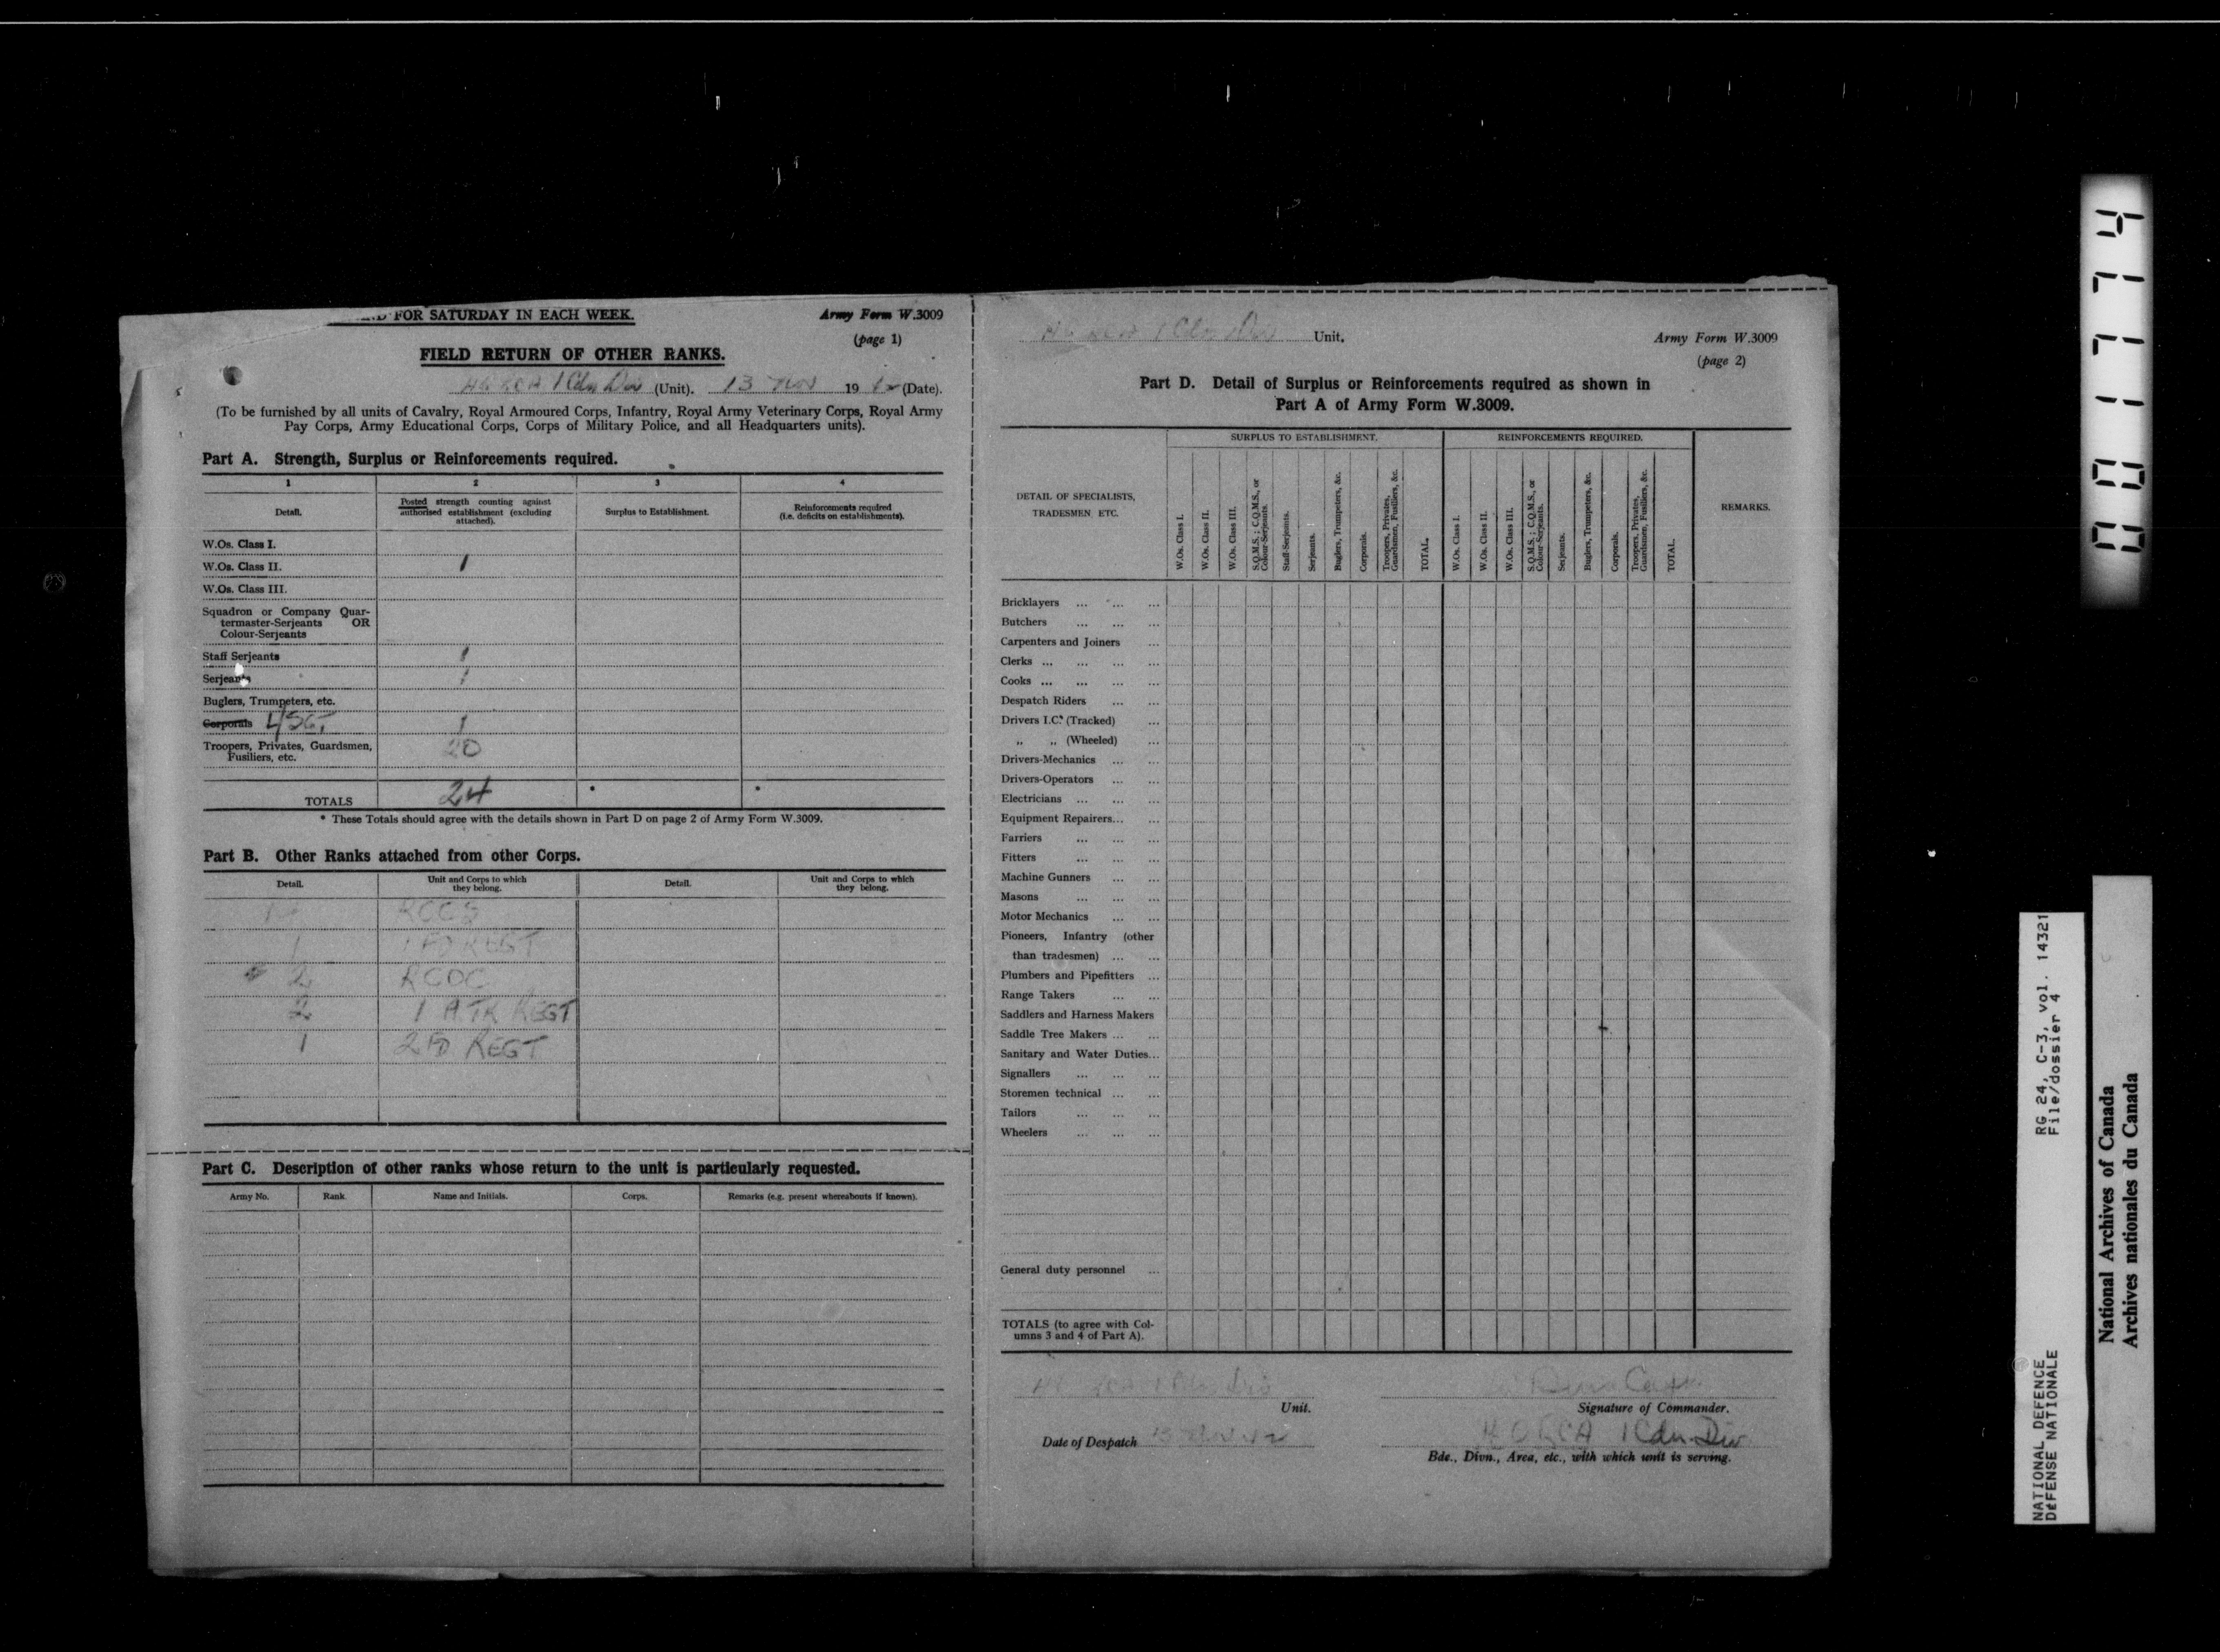 FOR SATURDAY IN EACH WEEK.
Army Form W.3009
(page 1)
FIELD RETURN OF OTHER RANKS.
HQ RCA 1 Cdn Div (Unit). 13 Nov 1942 (Date).
(To be furnished by all units of Cavalry, Royal Armoured Corps, Infantry, Royal Army Veterinary Corps, Royal Army
Pay Corps, Army Educational Corps, Corps of Military Police, and all Headquarters units).
Part A. Strength, Surplus or Reinforcements required.
1 2 3 4
Detail.
Posted strength counting against
authorised establishment (excluding
attached).
Surplus to Establishment.
Reinforcements required
(i.e. deficits on establishments).
W.Os. Class I.
W.Os. Class II. 1
W.Os. Class III.
Squadron or Company Quar-
termaster-Serjeants OR
Colour-Serjeants
Staff Serjeants 1
Serjeants 1
Buglers, Trumpeters, etc.
Corporals L/SGT 1
Troopers, Privates, Guardsmen, 20
Fusiliers, etc.
TOTALS 24 * *
* These Totals should agree with the details shown in Part D on page 2 of Army Form W.3009.
Part B. Other Ranks attached from other Corps.
Detail.
Unit and Corps to which
they belong.
Detail.
Unit and Corps to which
they belong.
RCCS
1 1 FD REGT
2 RCOC
2 1 A TK REGT
1 2 FD REGT
Part C. Description of other ranks whose return to the unit is particularly requested.
Army No. Rank. Name and Initials. Corps. Remarks (e.g. present whereabouts if known).
1 Cdn Div Unit.
Army Form W.3009
(page 2)
Part D. Detail of Surplus or Reinforcements required as shown in
Part A of Army Form W.3009.
SURPLUS TO ESTABLISHMENT. REINFORCEMENTS REQUIRED.
DETAIL OF SPECIALISTS,
TRADESMEN ETC.
W.Os. Class I.
W.Os. Class II.
W.Os. Class III.
S.Q.M.S.; C.Q.M.S., or
Colour-Serjeants.
Staff-Serjeants.
Serjeants.
Buglers, Trumpeters, &c.
Corporals.
Troopers, Privates,
Guardsmen, Fusiliers, &c.
TOTAL.
W.Os. Class I.
W.Os. Class II.
W.Os. Class III.
S.Q.M.S.; C.Q.M.S., or
Colour-Serjeants.
Serjeants.
Buglers, Trumpeters, &c.
Corporals.
Troopers, Privates,
Guardsmen, Fusiliers, &c.
TOTAL.
REMARKS.
Bricklayers ... ... ...
Butchers ... ... ...
Carpenters and Joiners ...
Clerks ... ... ... ...
Cooks ... ... ... ...
Despatch Riders ... ...
Drivers I.C. (Tracked) ...
„ „ (Wheeled) ...
Drivers-Mechanics ... ...
Drivers-Operators ... ...
Electricians ... ... ...
Equipment Repairers... ...
Farriers ... ... ...
Fitters ... ... ...
Machine Gunners ... ...
Masons ... ... ...
Motor Mechanics ... ...
Pioneers, Infantry (other
than tradesmen) ... ...
Plumbers and Pipefitters ...
Range Takers ... ...
Saddlers and Harness Makers
Saddle Tree Makers ... ...
Sanitary and Water Duties...
Signallers ... ... ...
Storemen technical ... ...
Tailors ... ... ...
Wheelers ... ... ...
General duty personnel ...
TOTALS (to agree with Col-
umns 3 and 4 of Part A).
Unit.
Capt.
Signature of Commander.
Date of Despatch 13 Nov 42
HQ RCA 1 Cdn Div
Bde., Divn., Area, etc., with which unit is serving.
001774
NATIONAL DEFENCE RG 24, C-3, vol. 14321
DÉFENSE NATIONALE File/dossier 4
National Archives of Canada
Archives nationales du Canada